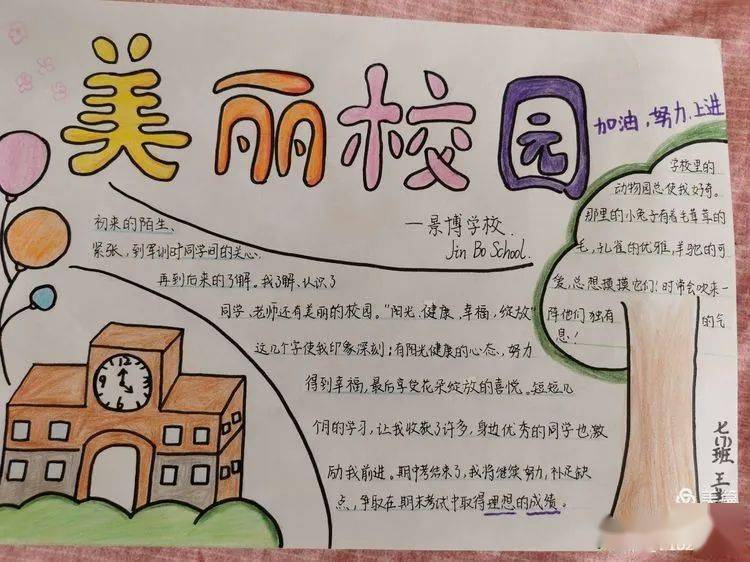 美丽校园
加油,努力,上进
一景博学校.
Jin Bo School.
初来的陌生、
紧张,到军训时同学间的关心,
再到后来的了解。我了解、认识了
同学、老师还有美丽的校园。“阳光、健康、幸福,绽放”
这几个字使我印象深刻:有阳光健康的心态,努力
得到幸福,最后享受花朵绽放的喜悦。短短几
个月的学习,让我收获了许多,身边优秀的同学也激
励我前进。期中考结束了,我将继续努力,补足缺
点,争取在期末考试中取得理想的成绩。
学校里的
动物园总使我好奇。
那里的小兔子有着毛茸茸的
毛,孔雀的优雅,羊驼的可
爱,总想摸摸它们!时常会吹来一
阵他们 独有 的气
息!
12
七(1)班 王
美篇